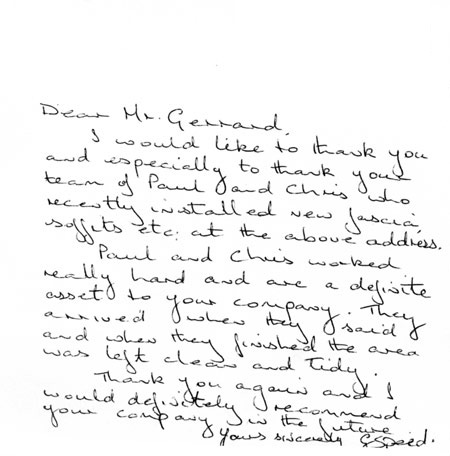 Dear Mr. Gerrard,
I would like to thank you
and especially to thank your
team of Paul and Chris who
recently installed new fascia,
soffits etc. at the above address.
Paul and Chris worked
really hard and are a definite
asset to your company. They
arrived when they said
and when they finished the area
was left clean and tidy.
Thank you again and I
would definitely recommend
your company in the future
Yours sincerely